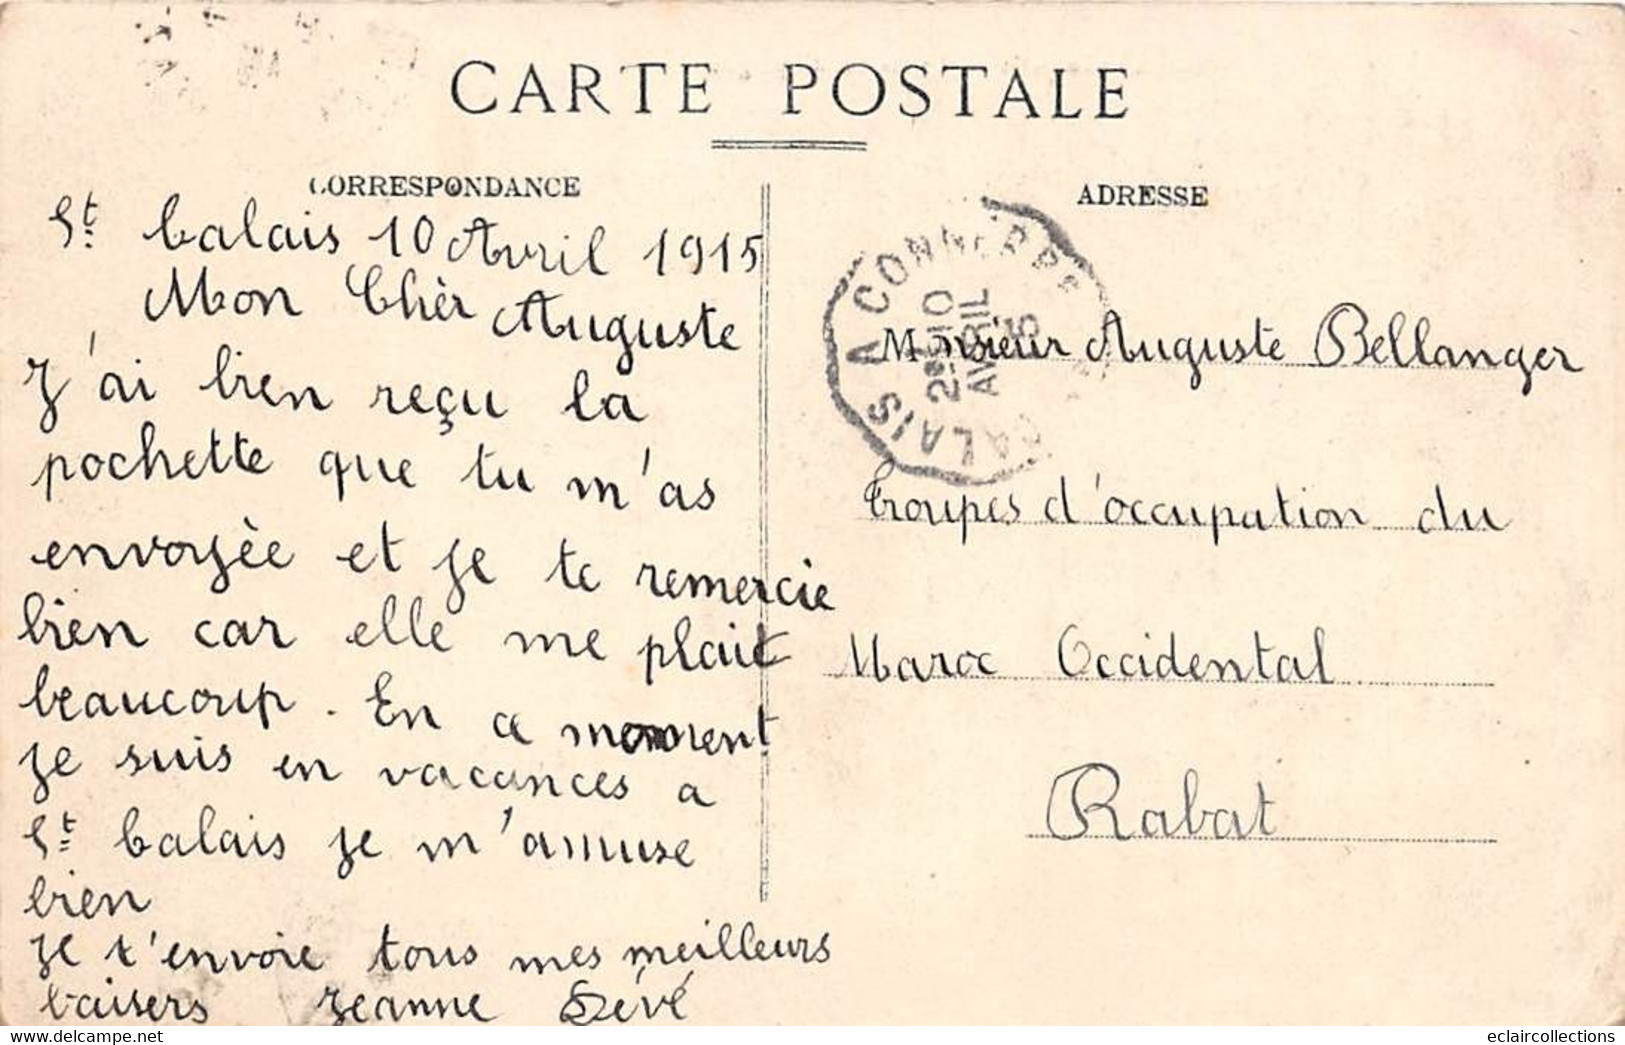 CARTE POSTALE
CORRESPONDANCE
St Calais 10 Avril 1915
Mon Chèr Auguste
J'ai bien reçu la
pochette que tu m'as
envoyèe et je te remercie
bien car elle me plait
beaucoup. En ce moment
je suis en vacances a
St Calais je m'amuse
bien
je t'envoie tous mes meilleurs
baisers Jeanne Sévé
ADRESSE
CALAIS A CONNERRE
2e 10
AVRIL
15
Monsieur Auguste Bellanger
Troupes d'occupation du
Maroc Occidental
Rabat
www.delcampe.net
eclaircollections